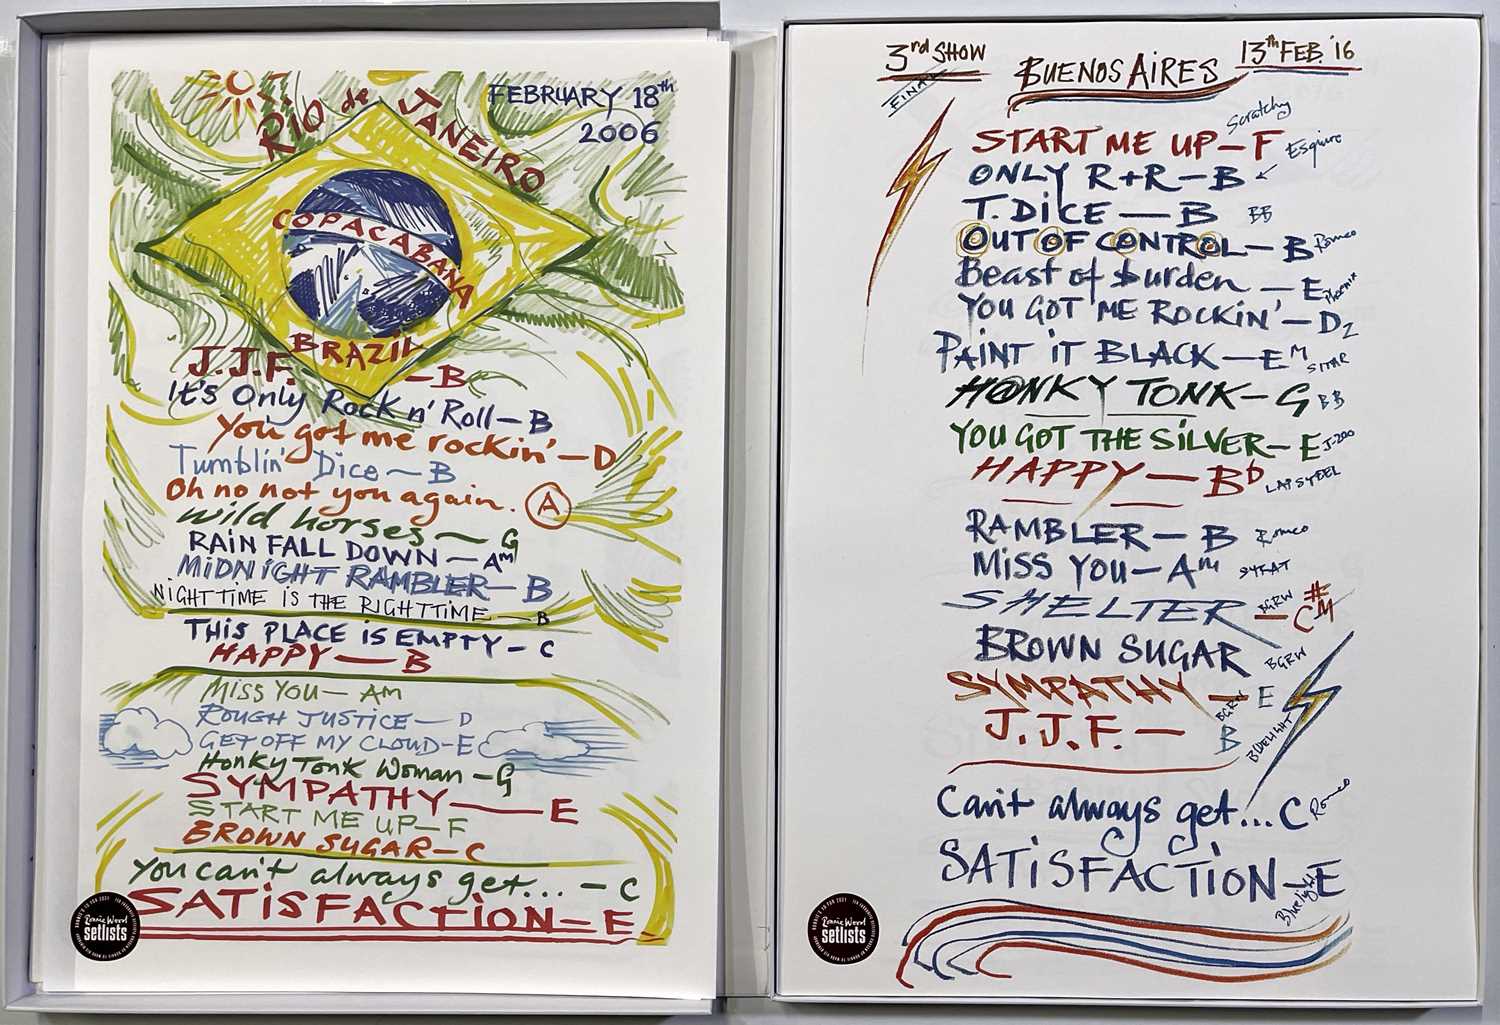 RIO de JANEIRO
FEBRUARY 18th
2006
COPACABANA
BRAZIL
J.J.F. — B
It's Only Rock n' Roll — B
You got me rockin' — D
Tumblin' Dice — B
Oh no not you again. A
Wild horses — G
RAIN FALL DOWN — Am
MIDNIGHT RAMBLER — B
NIGHT TIME IS THE RIGHT TIME — B
THIS PLACE IS EMPTY - C
HAPPY — B
MISS YOU — Am
ROUGH JUSTICE — D
GET OFF MY CLOUD - E
Honky Tonk Woman - G
SYMPATHY — E
START ME UP — F
BROWN SUGAR — C
You can't always get... - C
SATISFACTION — E
Ronnie Wood
setlists
3rd SHOW
FINAL
BUENOS AIRES
13th FEB. '16
START ME UP — F Scratchy
ONLY R+R — B Esquire
T. DICE — B BB
OUT OF CONTROL — B Romeo
Beast of $urden — E Phoenix
YOU GOT ME ROCKIN' — D Z
PAINT IT BLACK — Em SITAR
HONKY TONK — G BB
YOU GOT THE SILVER — E J-200
HAPPY — Bb LAPSYDEL
RAMBLER — B Romeo
MISS YOU — Am STRAT
SHELTER — C#m BGRW
BROWN SUGAR BGRW
SYMPATHY — E BGRW
J.J.F. — B BDELIGHT
Can't always get... C Romeo
SATISFACTION — E Bluelight
Ronnie Wood
setlists